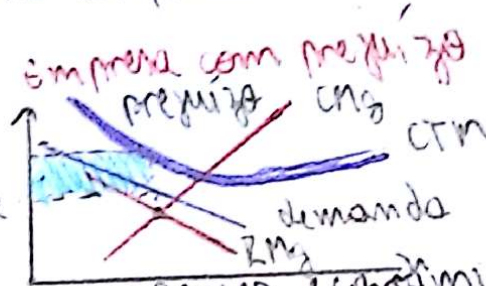 Empresa com prejuízo
prejuízo CMg
CTM
demanda
RMg